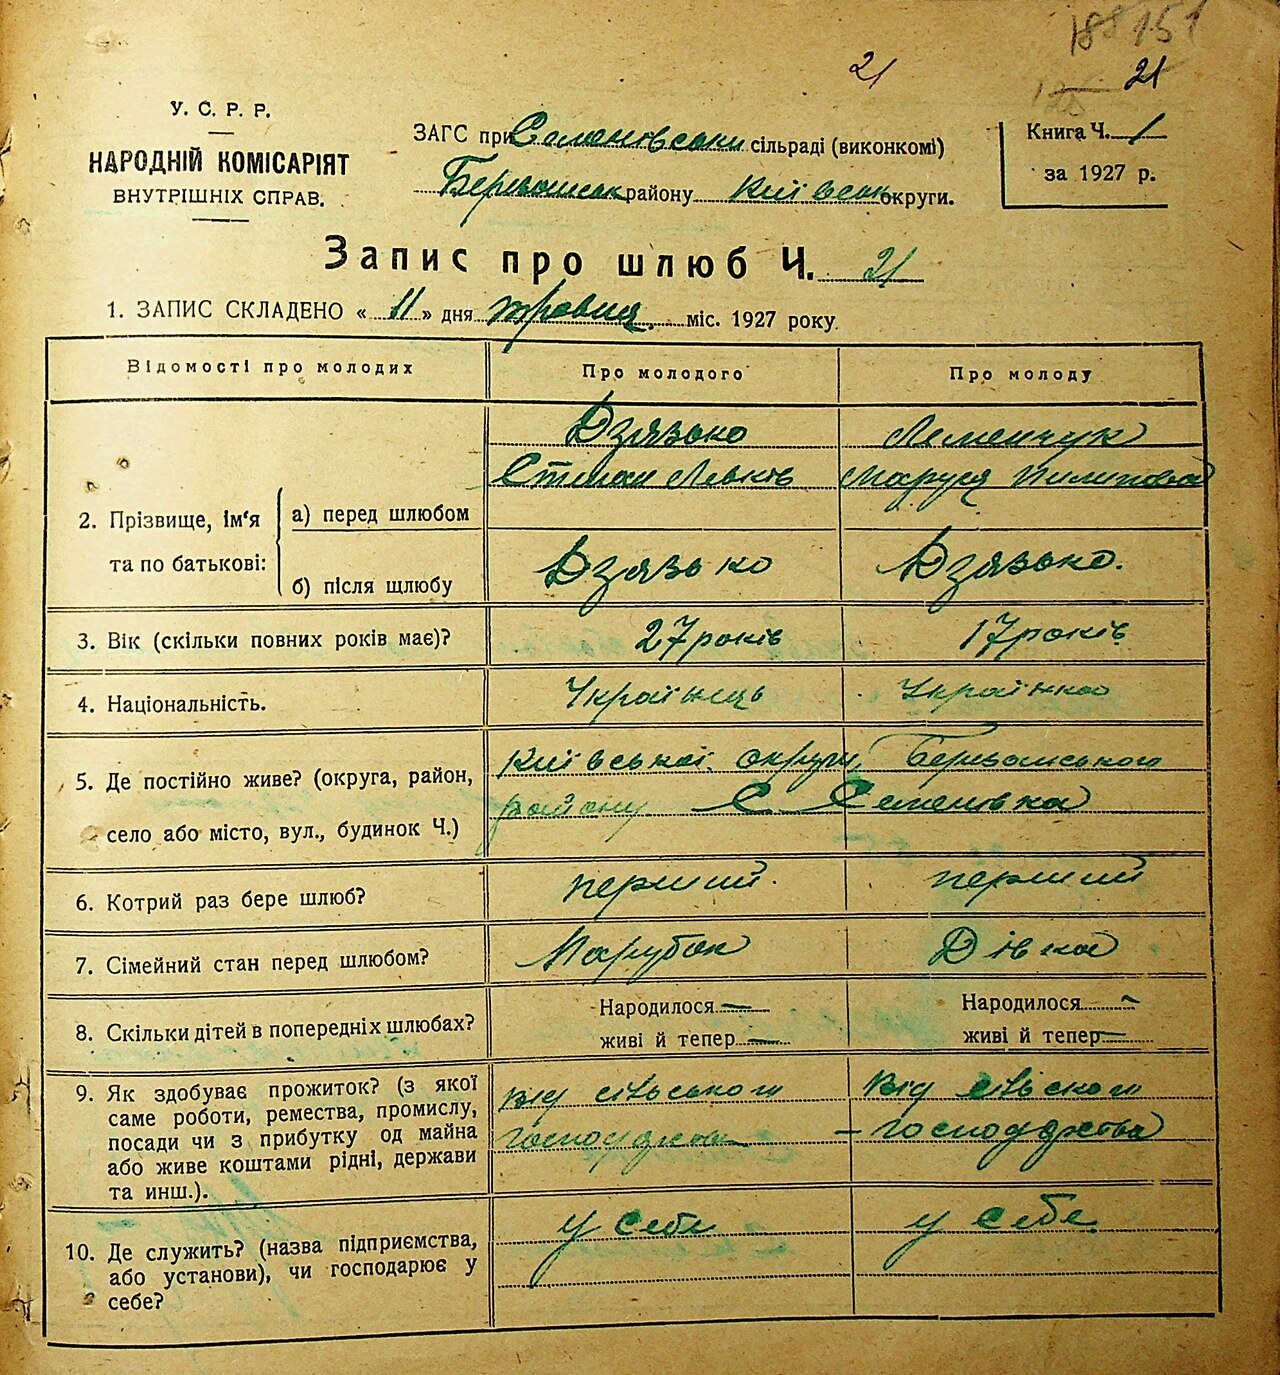 188 151
21
21
У. С. Р. Р.
НАРОДНІЙ КОМІСАРІЯТ
ВНУТРІШНІХ СПРАВ.
ЗАГС при Семенівській сільраді (виконкомі)
району Київськ округи.
Книга Ч. 1
за 1927 р.
Запис про шлюб Ч. 21
1. ЗАПИС СКЛАДЕНО « 11 » дня травня міс. 1927 року.
Відомості про молодих
Про молодого
Про молоду
2. Прізвище, ім'я та по батькові:
а) перед шлюбом
Дзязько
Степан Левків
Леменчук
Маруся Пилипова
б) після шлюбу
Дзязько
Дзязько.
3. Вік (скільки повних років має)?
27 років
17 років
4. Національність.
Українець
Українка
5. Де постійно живе? (округа, район,
село або місто, вул., будинок Ч.)
Київської округи, Березанського
району С. Семенівка
6. Котрий раз бере шлюб?
перший.
перший
7. Сімейний стан перед шлюбом?
Парубок
Дівка
8. Скільки дітей в попередніх шлюбах?
Народилося —
живі й тепер —
Народилося —
живі й тепер —
9. Як здобуває прожиток? (з якої
саме роботи, ремества, промислу,
посади чи з прибутку од майна
або живе коштами рідні, держави
та инш.).
від сівського
господарства
Від сівського
– господарства
10. Де служить? (назва підприємства,
або установи), чи господарює у
себе?
у себе
у себе